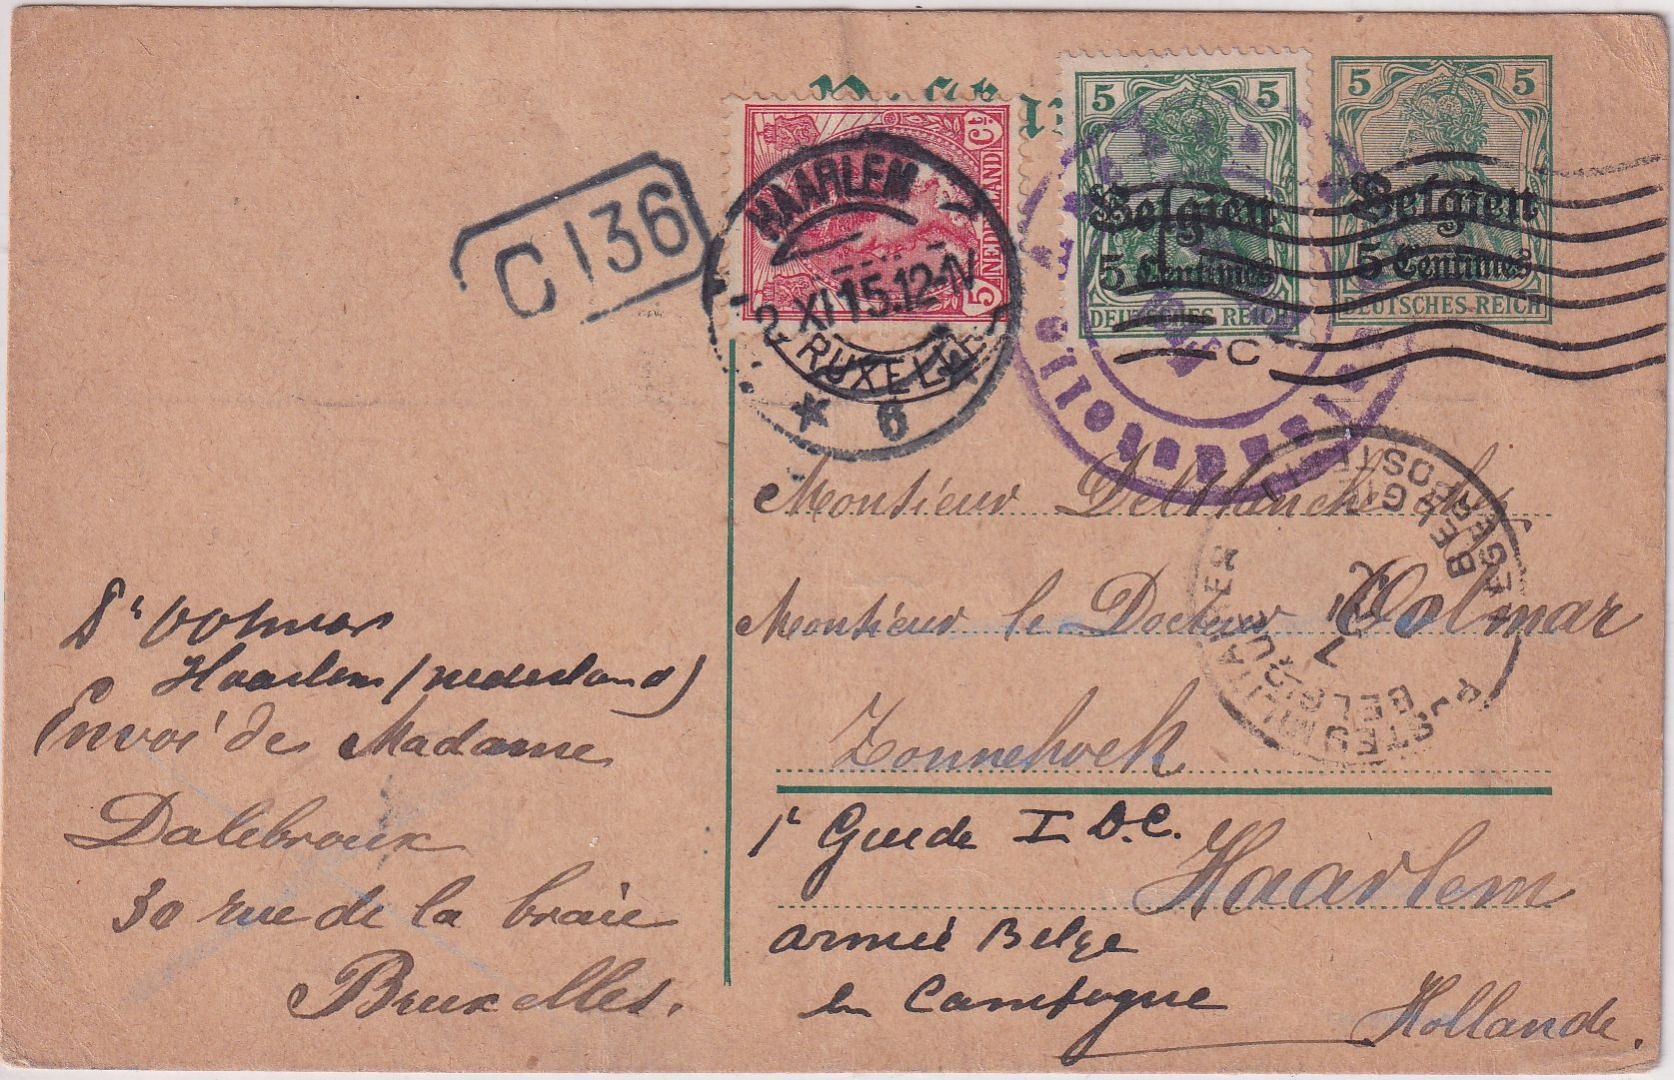 5 5
Belgien
5 Centimes
DEUTSCHES REICH
5 5
Belgien
5 Centimes
DEUTSCHES REICH
5 Ct NEDERLAND 5
HAARLEM
2 XI 15.12-1V
BRUXELLES
6
C 136
POSTES MILITAIRES
BELGIQUE
Monsieur
Monsieur le Docteur Volmar
Zonnehoek
1r Guide I D.C.
Haarlem
armée Belge
en Campagne
Hollande.
Dr Volmar
Haarlem (nederland)
Envoi de Madame
Dalebroux
30 rue de la braie
Bruxelles.